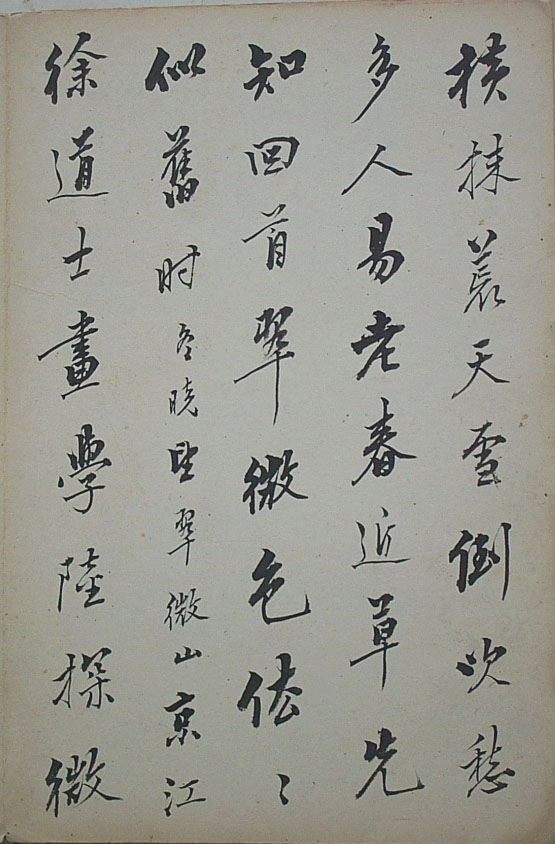 横抹荒天雪倒吹愁
多人易老春近草先
知回首翠微色依〻
似舊时冬晓望翠微山京江
徐道士畫學陸探微